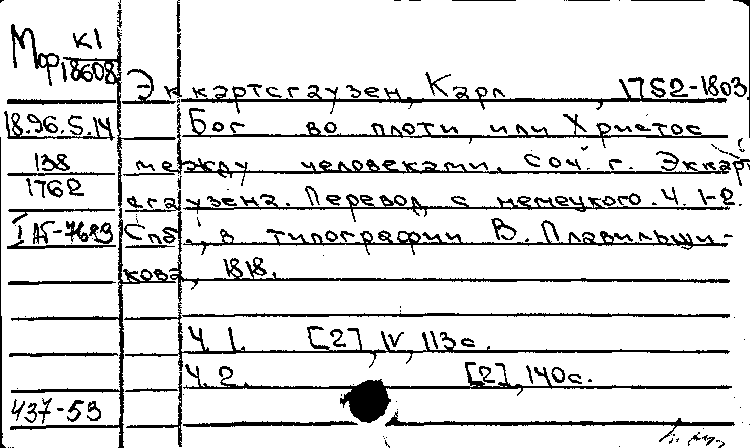 Мор К1
18608
Эккартсгаузен, Карл , 1752-1803.
18.96.5.14 Бог во плоти, или Христос
138 между человеками. Соч. г. Эккартс
1762 агаузена. Перевод с немецкого. Ч. 1-2.
Спб., в типографии В. Плавильщи-
кова, 1818.
Ч. 1. [2], IV, 113с.
Ч. 2. [2], 140с.
437-53